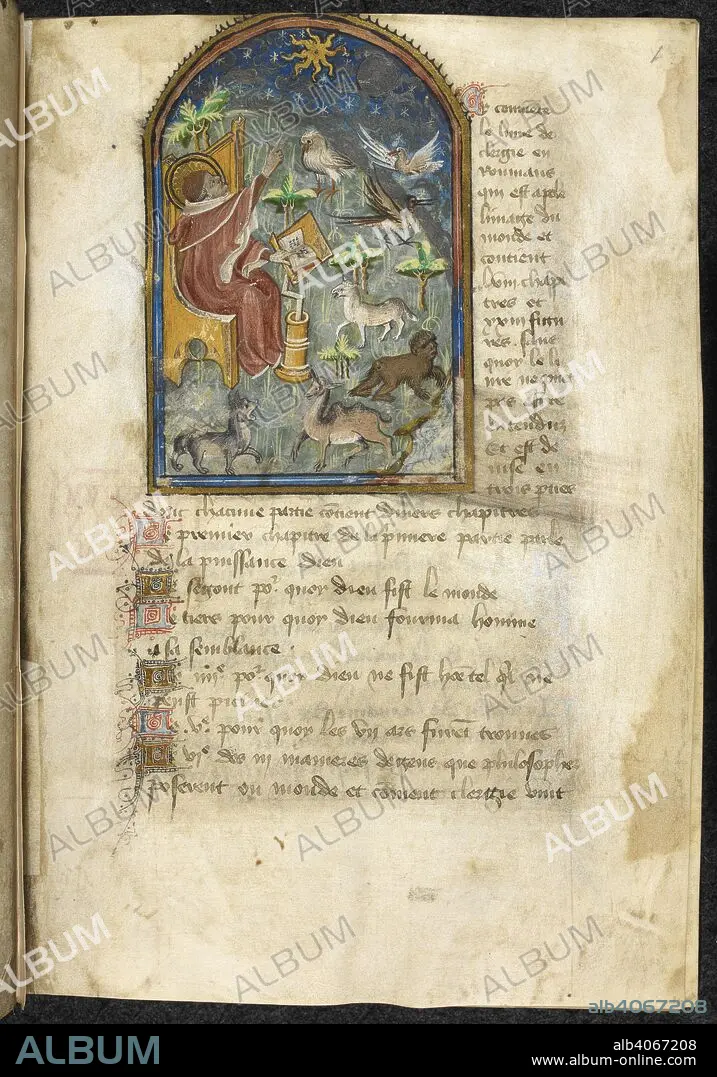 Ce comence
le livre de
clergie en
Roumans
qui est apele
limage du
monde et
contient
lviii chapi
tres et
xxviii figu
res sans
quoy le li
vre ne puet
pas estre
entenduz
Et est de
vise en
trois pties
donc chacune partie cotient divers chapitres
Le premier chapitre de la pmiere partie parle
de la puissance dieu
Le segont por quoy dieu fist le monde
Le tiers pour quoy dieu fourma homme
a sa semblance
Le iiiie por quoy dieu ne fist hoe tel ql ne
peust pechier
Le ve pour quoy les vii ars furent trouvees
Le vie des iii manieres de gens que philosophes
poserent ou monde et coment clergie vint
ALBUM
alb4067208
ALBUM
alb4067208
www.album-online.com